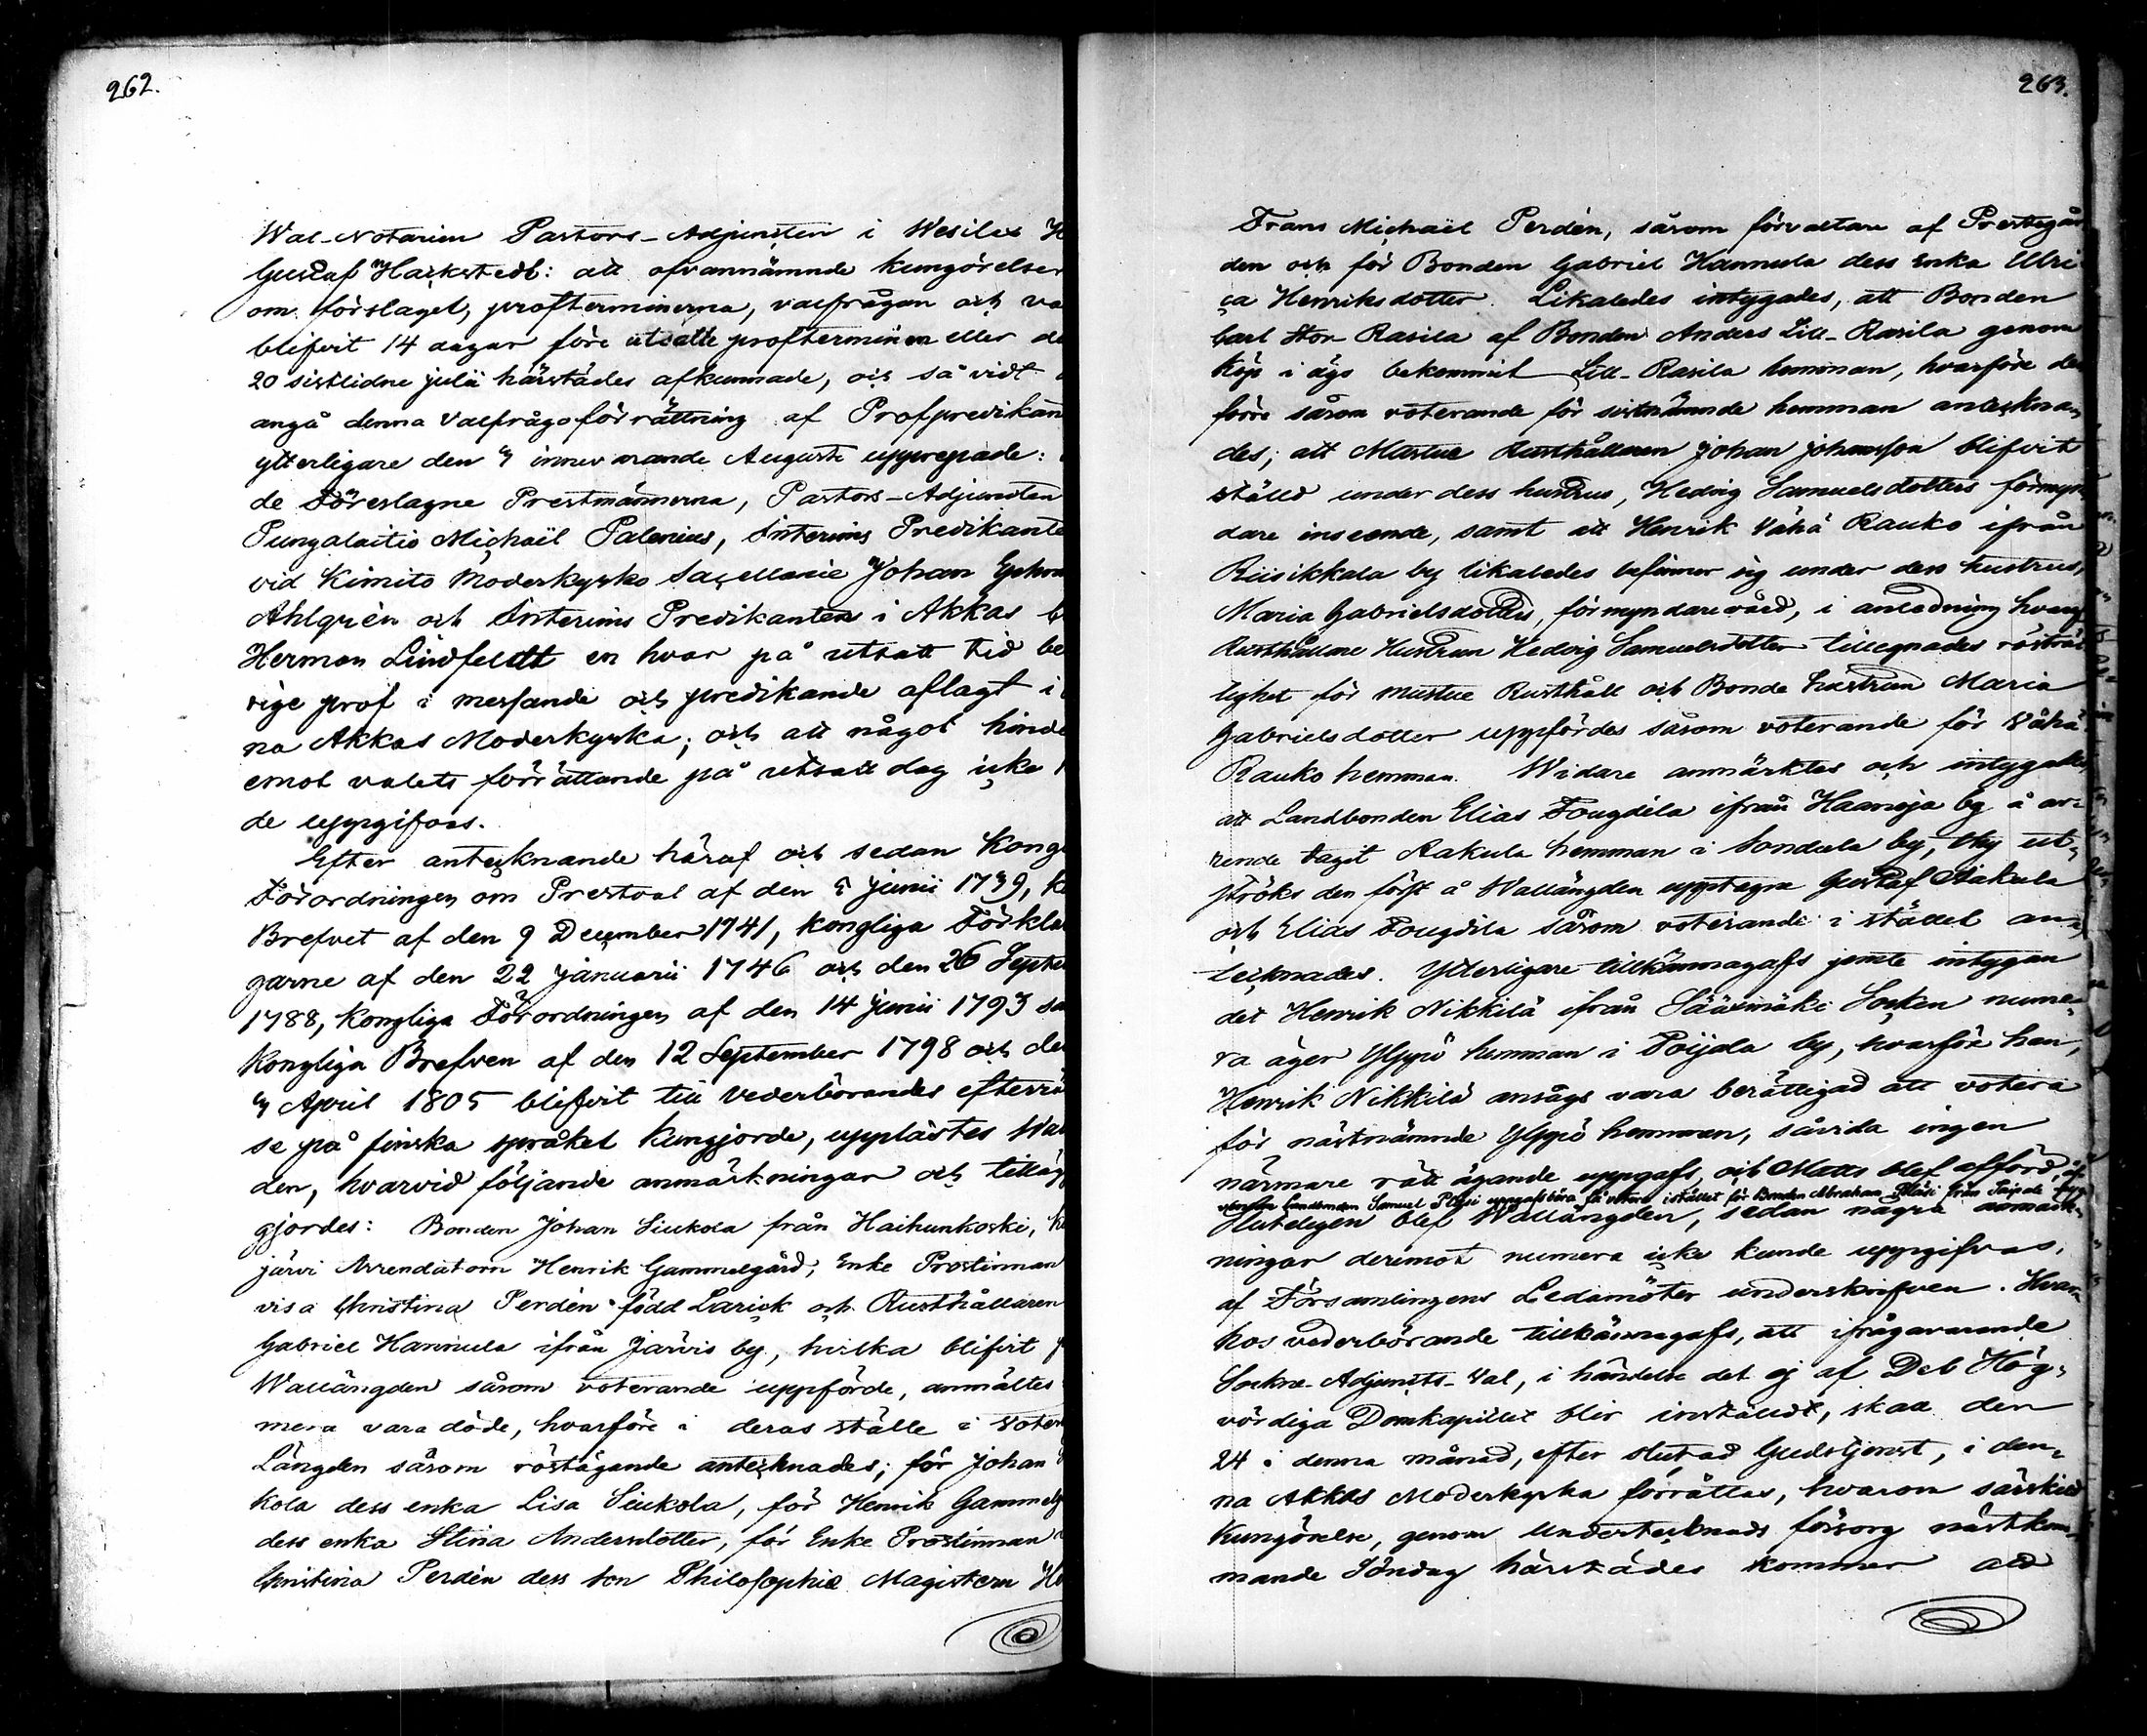 262.
Wal-Notarien Pastors-Adjuncten i Wesilax
Gustaf Hackstedt: att ofvannämnde kungörelser
om förslaget, profterminerna, valfrågan och
blifvit 14 dagar före utsatte profterminen eller
20 sistlidne julii härstädes afkunnade, och så vidt
angå denna Valfrågoförrättning af Profpredikan
ytterligare den innevarande Augusti upprepade:
de Föreslagne Prestmännerna, Pastors-Adjuncten
Pungalaitio Michaël Palenius, Interims Predikante
vid Kimito Moderkyrko Sacellanie Johan
Ahlgrén och Interims Predikanten i Akkas
Herman Lindfeldt en hvar på utsatt tid be
rige prof i messande och predikande aflagt i
na Akkas Moderkyrka; och att något hinde
emot valets förrättande på utsatt dag icke
de uppgifvas.
Efter antecknande häraf och sedan Kong
Förordningen om Prestval af den junii 1739,
Brefvet af den 9 December 1741, kongliga Förkla
garne af den 22 januarii 1746 och den 26 Septe
1788, Kongliga Förordningen af den 14 junii 1793 sa
Kongliga Brefven af den 12 September 1798 och de
April 1805 blifvit till vederbörandes efterrä
se på finska språket kungjorde, upplästes Wal
den, hvarvid följande anmärkningar och tilläg
gjordes: Bonden Johan Siukola från Haihunkoski,
järvi Arrendatorn Henrik Gammelgård, Enke Prostinnan
visa Christina Perdén född Larick och Rusthållaren
Gabriel Hannula ifrån Järvis by, hvilka blifvit
Wallängden såsom voterande uppförde, anmältes
mera vara döde, hvarföre i deras ställe i voter
Längden såsom röstägande antecknades; för Johan
kola dess enka Lisa Siukola, för Henrik Gammelg
dess enka Stina Andersdotter, för Enke Prostinnan
Christina Perdén dess son Philosophie Magistern
263.
Frans Michaël Perdén, såsom förvaltare af Prestegår
den och för Bonden Gabriel Hannula dess enka Ulri
ca Henriksdotter. Likaledes intygades, att Bonden
Carl Stor-Rasila af Bonden Anders Lill-Rasila genom
köp i ägo bekommit Lill-Rasila hemman, hvarföre den
förre såsom voterande för sistnämnde hemman antekna-
des; att Mustue Rusthållaren Johan Johansson blifvit
ställd under dess hustrus, Hedvig Samuelsdotters förmyn
dare inseende, samt att Henrik Vähä Rauko ifrån
Riisikkala by likaledes befinner sig under dess hustrus,
Maria Gabrielsdotters, förmyndarevård, i anledning hvaraf
Rusthållare Hustrun Hedvig Samuelsdotter tillegnades rösträt
tighet för Mustue Rusthåll och Bonde hustrun Maria
Gabrielsdotter uppfördes såsom voterande för Vähä
Rauko hemman. Widare anmärktes och intygades
att Landbonden Elias Fougdila ifrån Haanoja by å ar-
rende tagit Aakula hemman i Sondula by, ty ut-
ströks den först å Wallängden upptagne Gustaf Aakula
och Elias Fougdila såsom voterande i stället an-
tecknades. Ytterligare tillkännagafs jemte intygan
det Henrik Nikkilä ifrån Säärmäki Socken nume-
ra äger Ylppö hemman i Toijola by, hvarföre han,
Henrik Nikkilä ansågs vara berättigad att votera
för nästnämnde Ylppö hemman, såvida ingen
närmare rätt ägande uppgafs, och Matts blef afförd,
Landbonden Samuel Pläsi uppgafs böra få votera istället för Bonden Abraham Pläsi från Taipale
Slutligen blef Wallängden, sedan några anmärk-
ningar deremot numera icke kunde uppgifvas,
af Församlingens Ledamöter underskrifven. Hvar-
hos vederbörande tillkännagafs, att ifrågavarande
Sockne-Adjuncts-Val, i händelse det ej af Det Hög-
vördiga Domkapitlet blir inställdt, skall den
24 i denna månad, efter slutad Gudstjenst, i den-
na Akkas Moderkyrka förrättas, hvarom särskild
Kungörelse, genom Undertecknads försorg nästkom-
mande Söndag härstädes kommer att